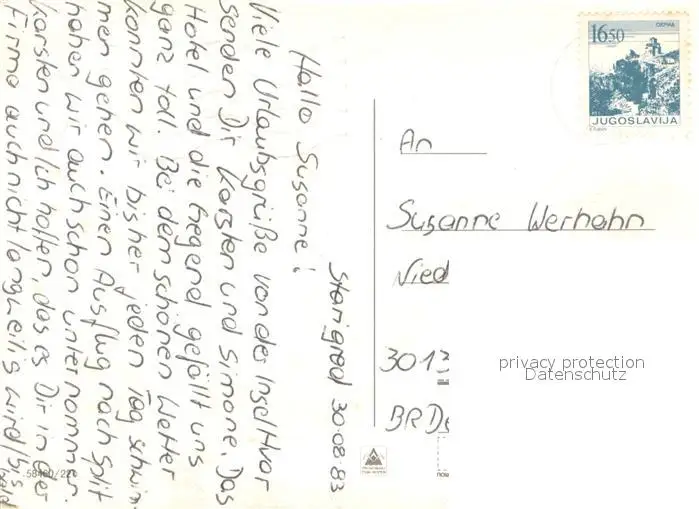 Starigrad 30.08.83
Hallo Susanne!
Viele Urlaubsgrüße von der Insel Hvar
senden Dir Karsten und Simone. Das
Hotel und die Gegend gefällt uns
ganz toll. Bei dem schönen Wetter
konnten wir bisher jeden Tag schwim-
men gehen. Einen Ausflug nach Split
haben wir auch schon unternommen.
Karsten und ich hoffen, das es Dir in der
Firma auch nicht langweilig wird! Bis
bald
1650
JUGOSLAVIJA
An
Susanne Werhahn
Nied
3013
BRDe
privacy protection
Datenschutz